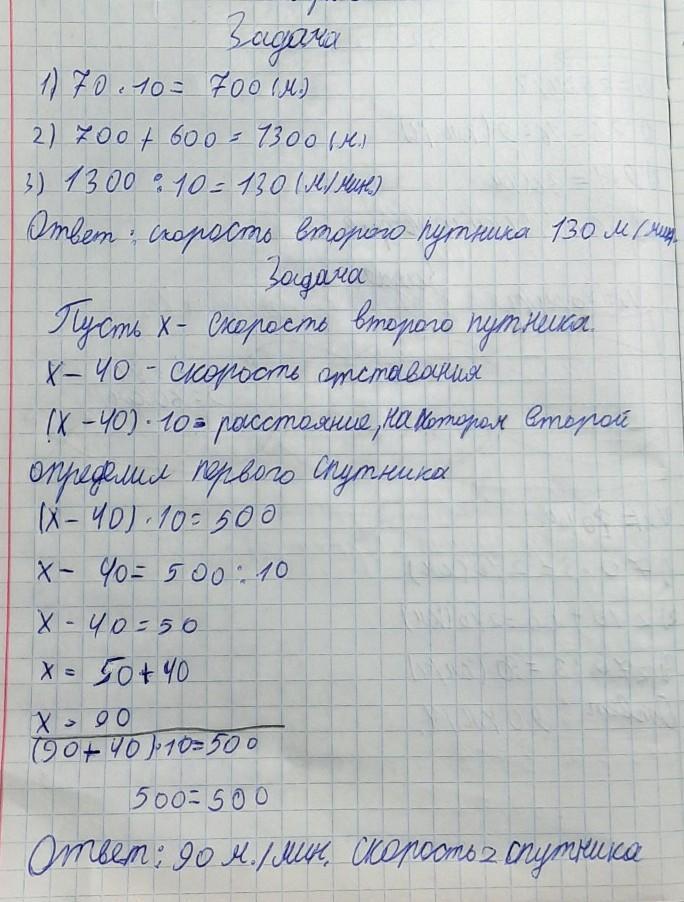 Задача
1) 70 · 10 = 700 (м.)
2) 700 + 600 = 1300 (м.)
3) 1300 : 10 = 130 (м/мин.)
Ответ: скорость второго путника 130 м/мин.
Задача
Пусть х - скорость второго путника.
х - 40 - скорость отставания
(х - 40) · 10 = расстояние, на котором второй
определил первого спутника
(х - 40) · 10 = 500
х - 40 = 500 : 10
х - 40 = 50
х = 50 + 40
х = 90
(90 + 40) · 10 = 500
500 = 500
Ответ: 90 м./мин. скорость 2 спутника